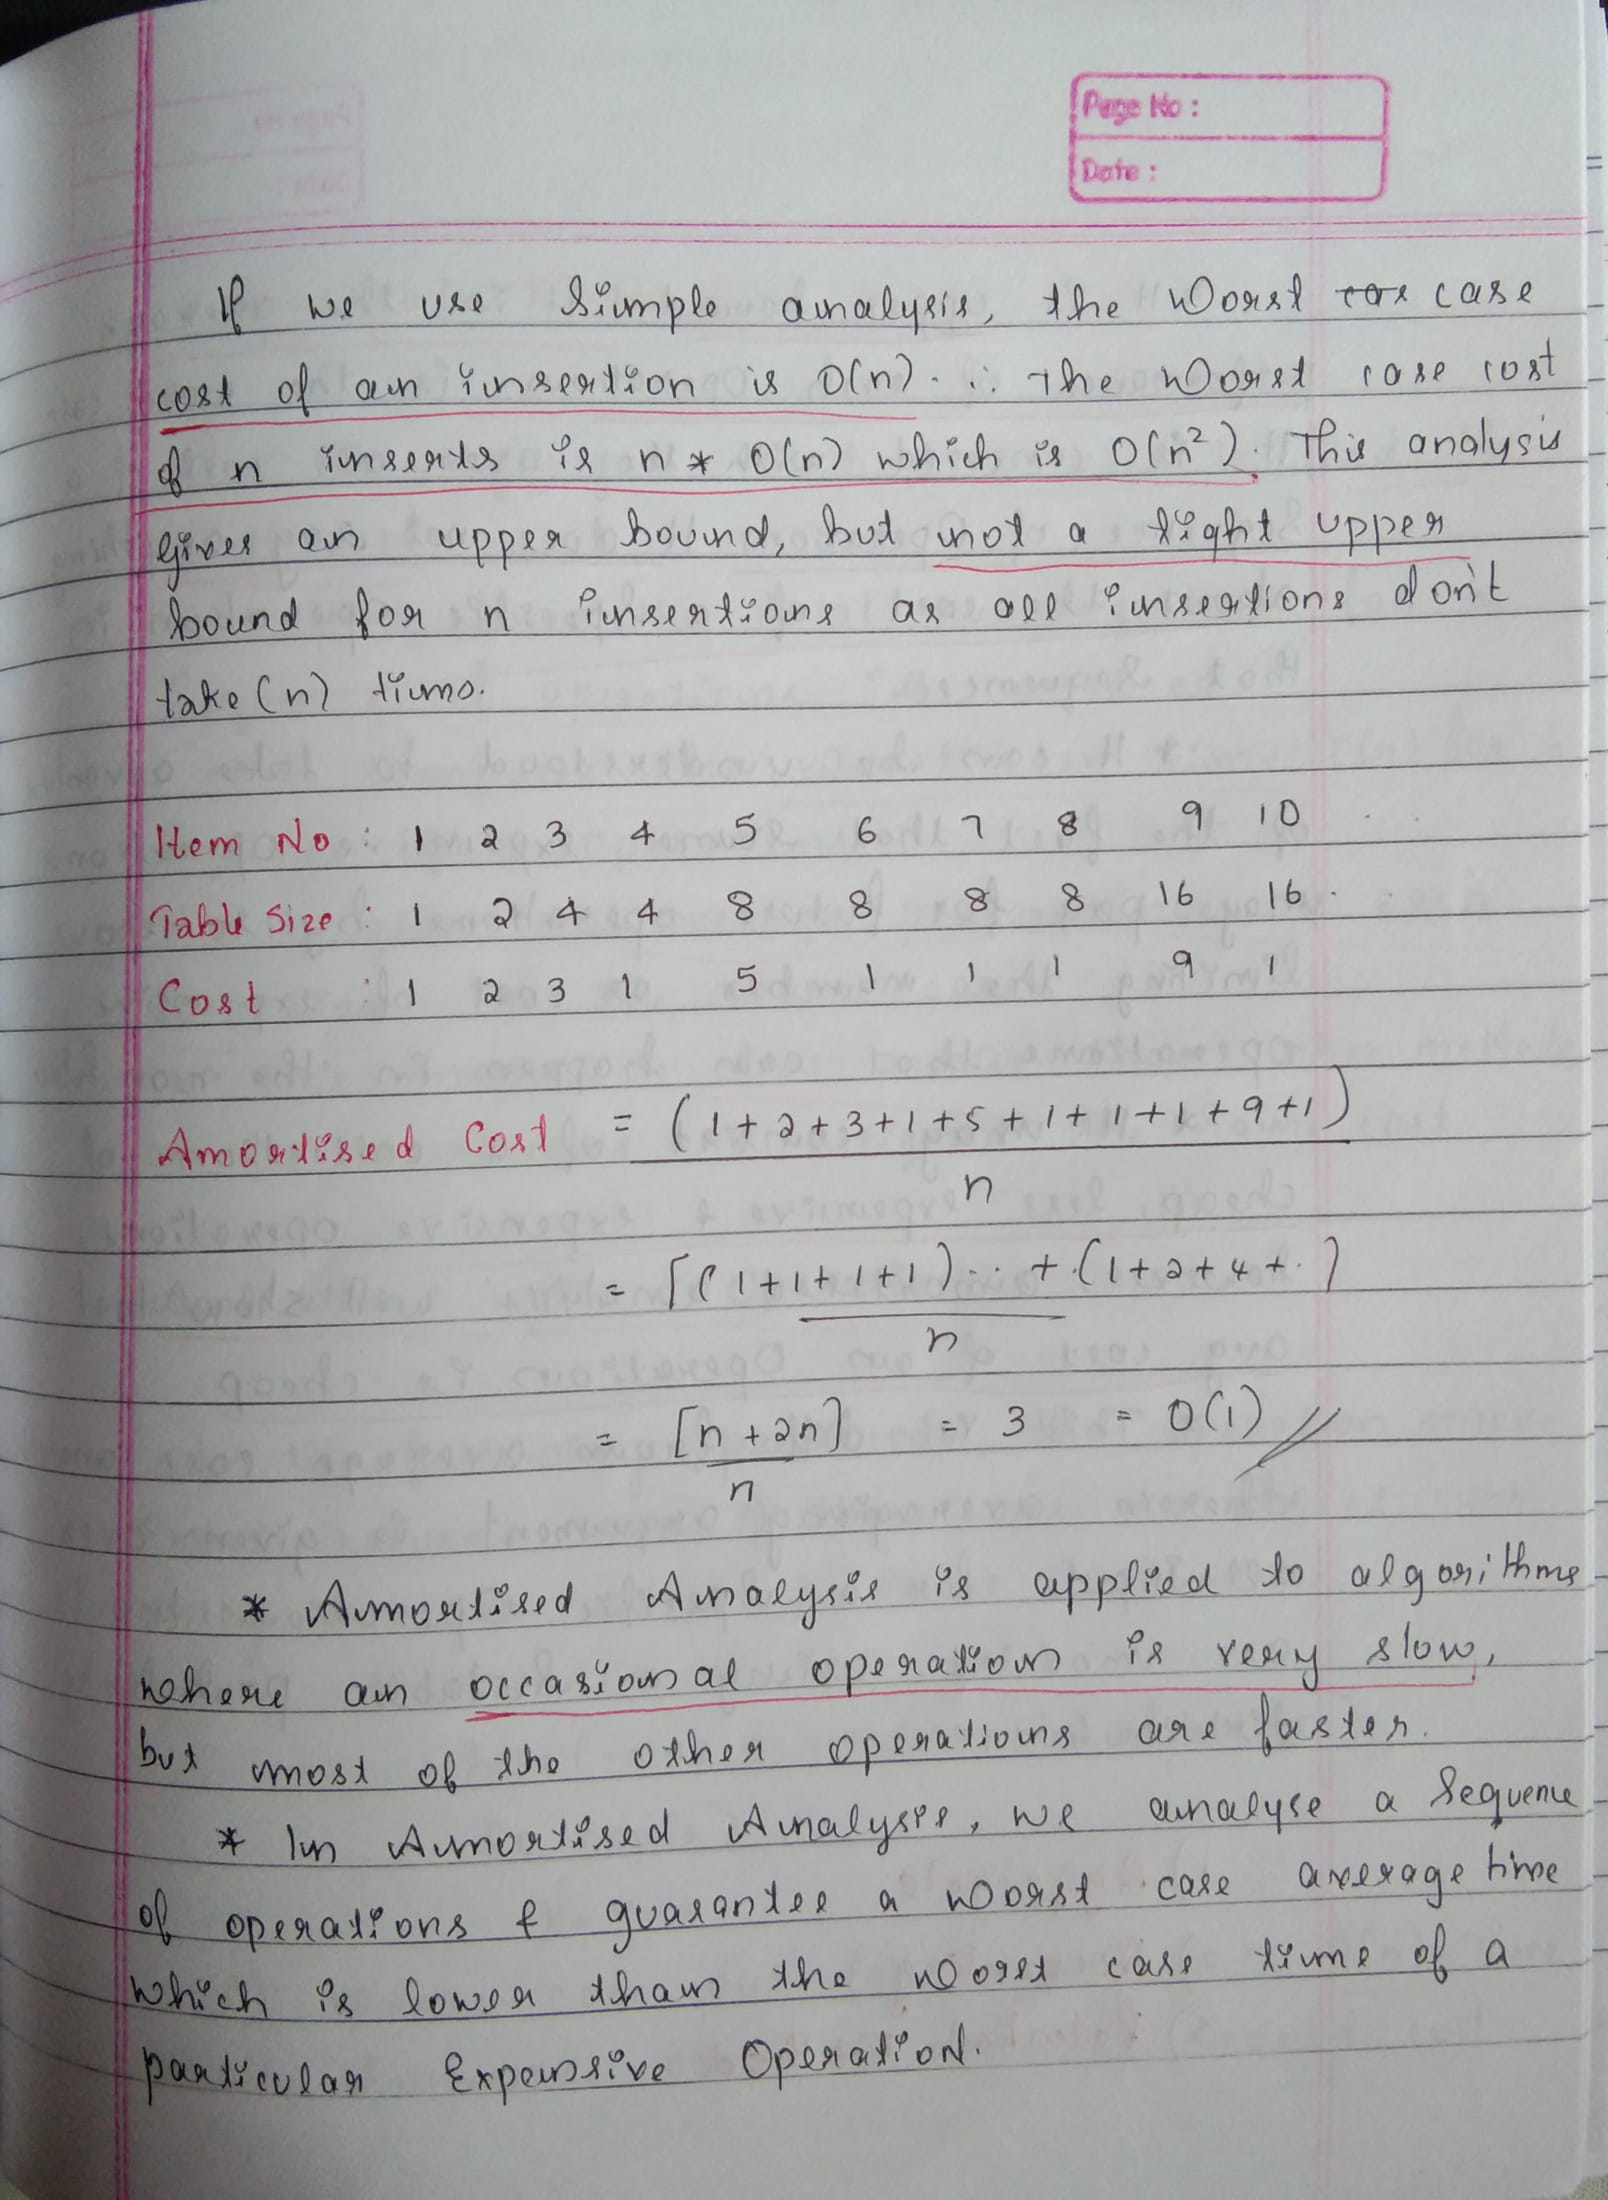 Page No :
Date :
If we use Simple analysis, the Worst case
cost of an insertion is O(n). ∴ The Worst case cost
of n inserts is n * O(n) which is O(n²). This analysis
gives an upper bound, but not a tight upper
bound for n insertions as all insertions don't
take (n) time.
Item No : 1 2 3 4 5 6 7 8 9 10 . .
Table Size : 1 2 4 4 8 8 8 8 16 16 .
Cost : 1 2 3 1 5 1 1 1 9 1
Amortised Cost = (1+2+3+1+5+1+1+1+9+1)
n
= [(1+1+1+1)..+.(1+2+4+.)
n
= [n+2n] = 3 = O(1) //
n
* Amortised Analysis is applied to algorithms
where an occasional operation is very slow,
but most of the other operations are faster.
* In Amortised Analysis, we analyse a Sequence
of operations & guarantee a worst case average time
which is lower than the worst case time of a
particular Expensive Operation.